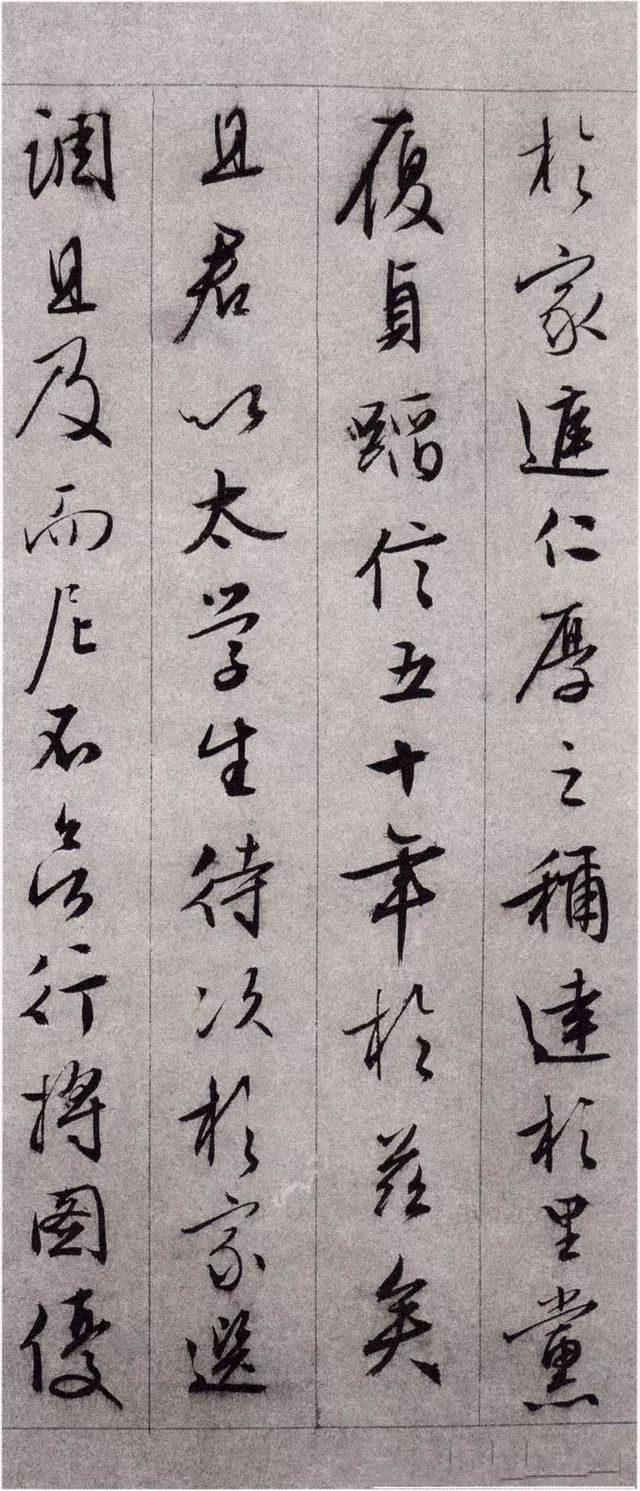 於家庭仁厚之稱達於里黨
履貞蹈信五十年於茲矣
且君以太學生待次於家選
調且及而尼不行將圖優